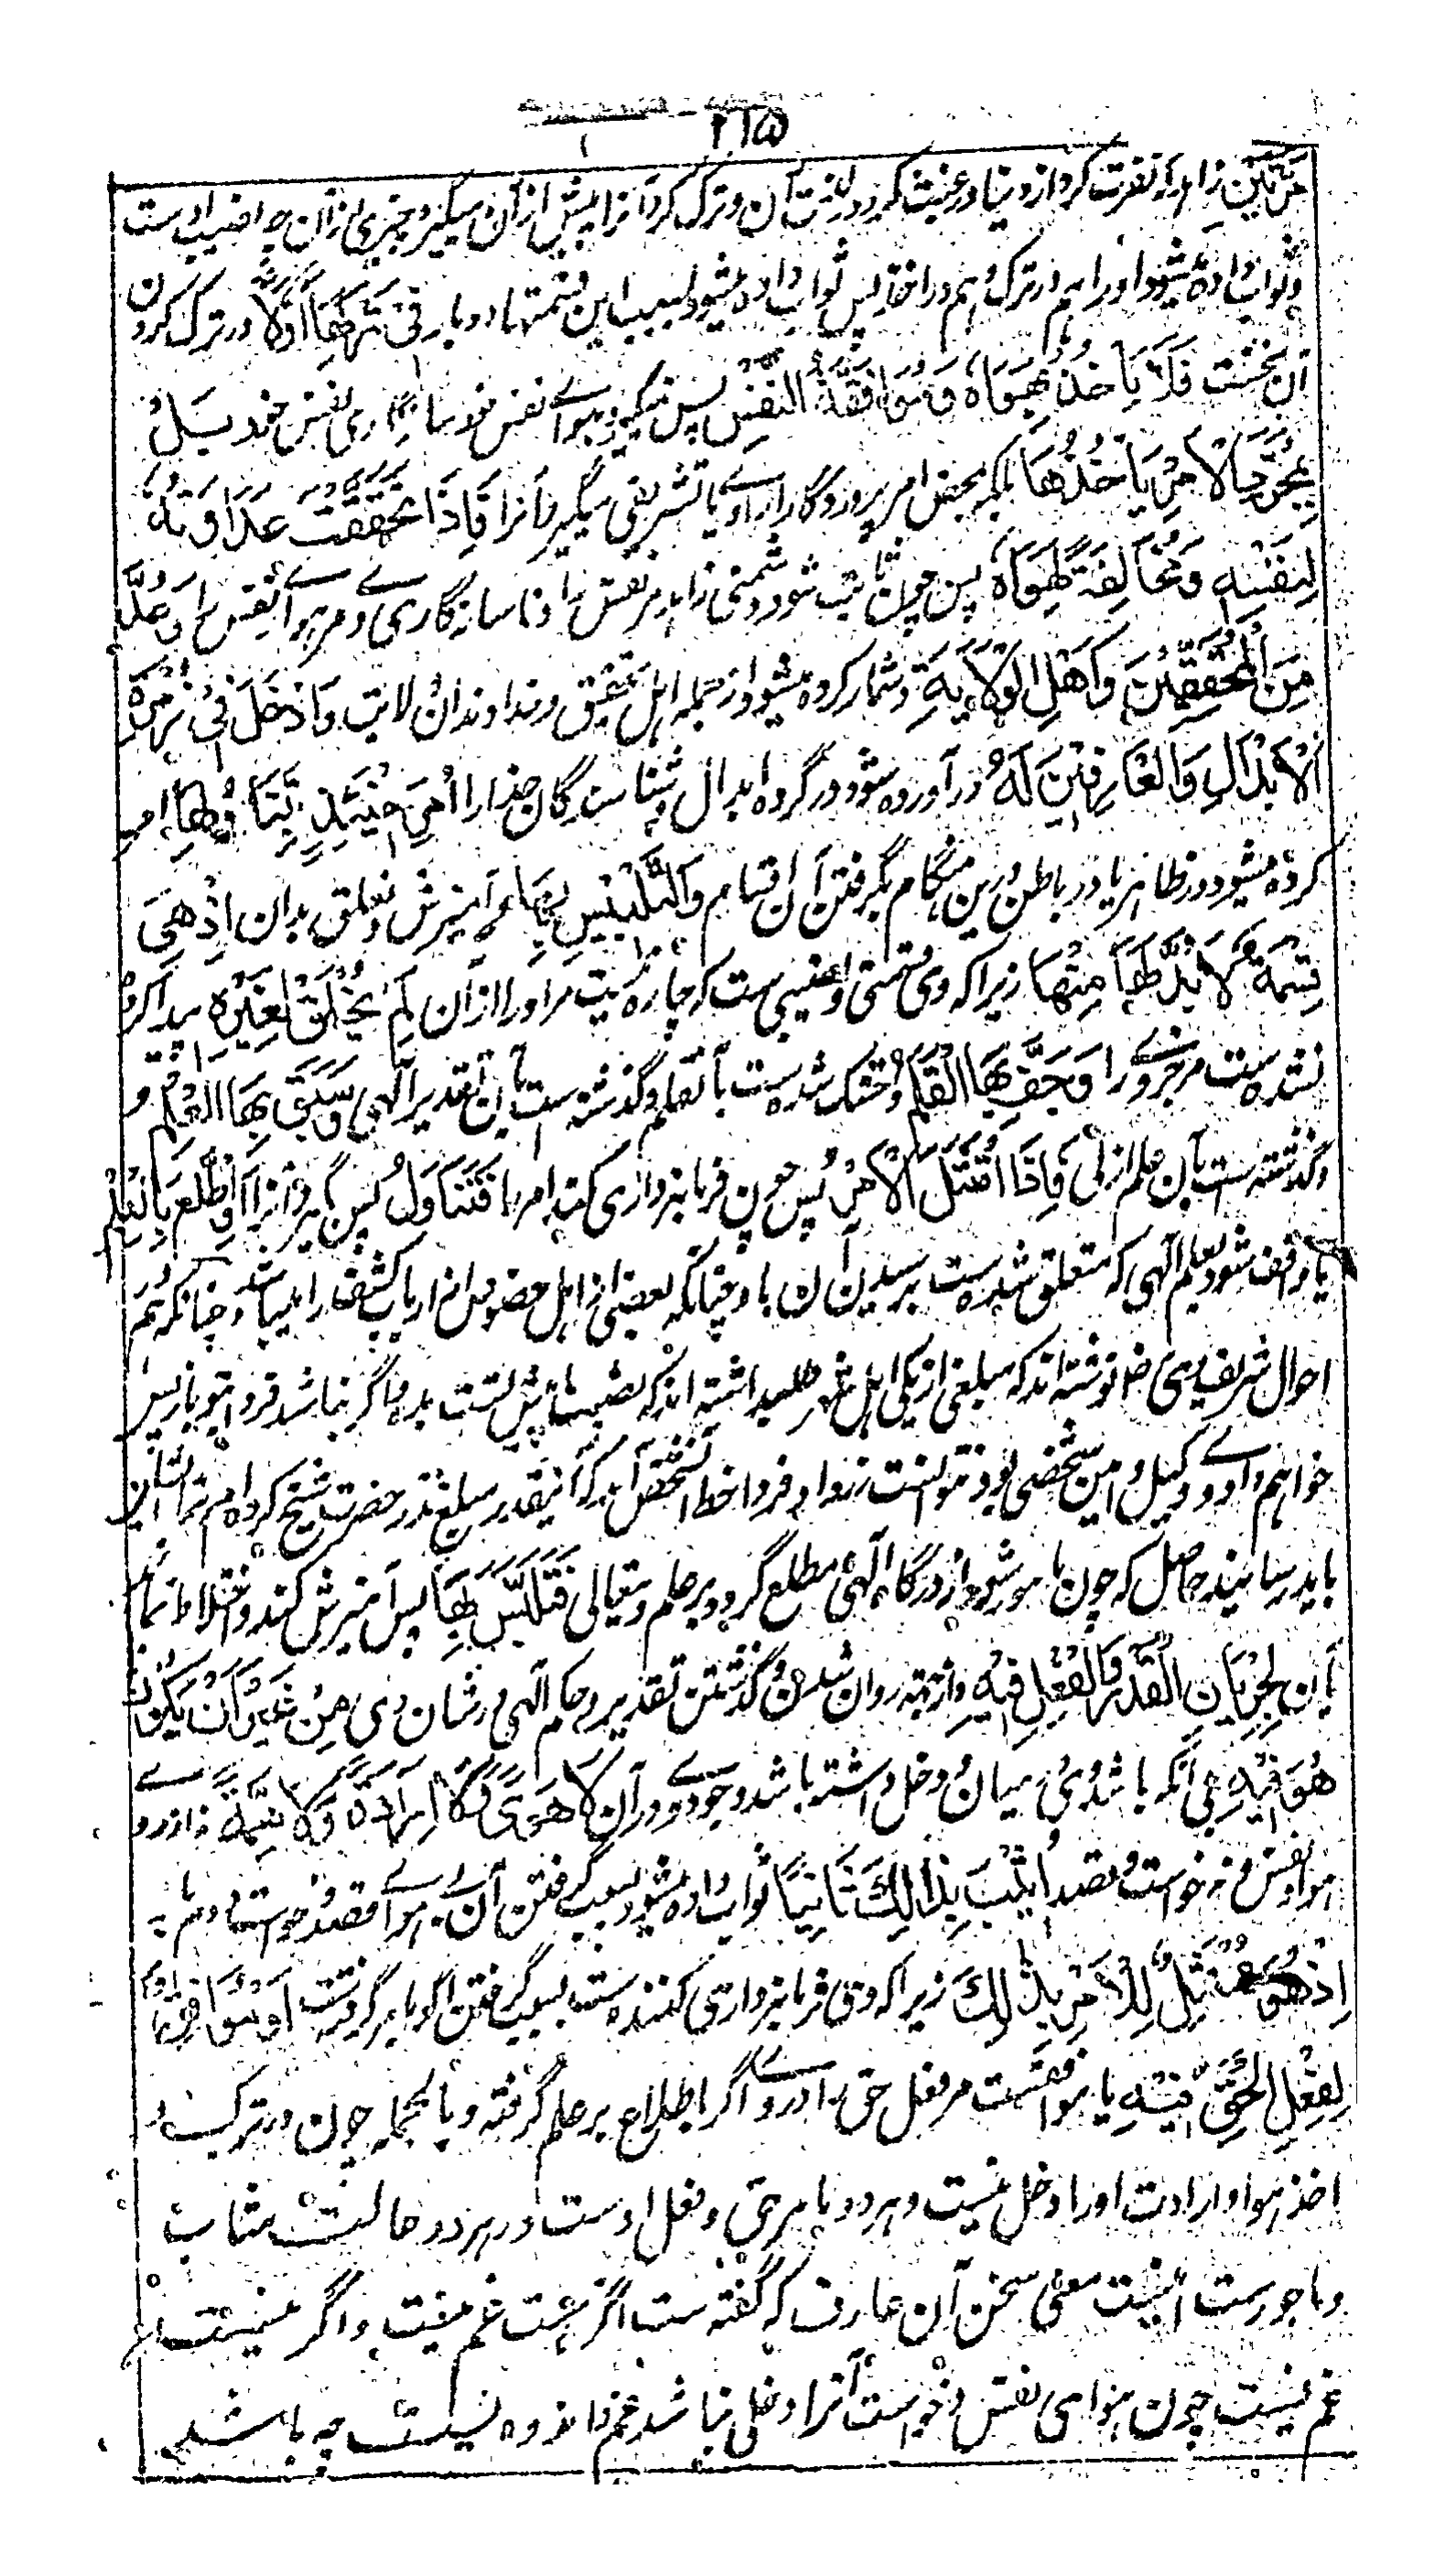 ۲۱۵
مَرَّتَيْنِ زاهد که نفرت کرد از دنیا و رغبت نکرد در لذت آن و ترک کرد آنرا پیش از آن میگیرد چیزی از آن چه نصیب اوست
و ثواب داده میشود او را هم در ترک و هم در اخذ پس ثواب داده میشود بسبب این قسمتها دو بار فِي تَرْكِهَا اَوَّلًا در ترک کردن
آن نخست فَلَا يَاْخُذُ بِهَوَاهُ وَمُوَافَقَةِ النَّفْسِ پس نمیگیرد بهوای نفس خود سازگاری نفس خود بَلْ
بِمُجَرَّدِ الْاَمْرِ يَاْخُذُهَا بلکه بمحض امر پروردگار ارادی یا تشریفی میگیرد آنرا فَاِذَا تَحَقَّقَتْ عَدَاوَتُهُ
لِنَفْسِهِ وَمُخَالَفَةُ هَوَاهُ پس چون ثابت شود دشمنی زاهد مر نفس را و ناسازگاری وی مر هوای نفس را وَعُدَّ
مِنَ الْمُحَقِّقِيْنَ وَاَهْلِ الْوِلَايَةِ و شمار کرده میشود از جمله اهل تحقیق و خداوندان ولایت وَاُدْخِلَ فِيْ زُمْرَةِ
الْاَبْدَالِ وَالْعَارِفِيْنَ لَهُ و در آورده شود در گروه ابدال و شناسندگان خدا را اُمِرَ حِيْنَئِذٍ بِتَنَاوُلِهَا امر
کرده میشود در ظاهر یا در باطن درین هنگام بگرفتن آن اقسام وَالتَّلَبُّسِ بِهَا و آمیزش و تعلق بدان اِذْ هِيَ
قِسْمَةٌ لَا بُدَّ لَهٗ مِنْهَا زیرا که وی قسمتی و نصیبی ست که چاره نیست مر او را از آن لَمْ تُخْلَقْ لِغَيْرِهِ پیدا کرده
نشده ست مر جز وی را وَجَفَّ بِهَا الْقَلَمُ و خشک شده ست بآن قلم و گذشته ست بآن تقدیر الهی وَسَبَقَ بِهَا الْعِلْمُ و
و گذشته ست بآن علم ازلی فَاِذَا امْتَثَلَ الْاَمْرَ پس چون فرمانبرداری کند امر را فَتَنَاوَلَ پس گیرد آنرا اَوِ اطَّلَعَ بِالْعِلْمِ
یا واقف شود بعلم الهی که متعلق شده ست برسیدن آن باو چنانکه بعضی از اهل حضور و ارباب کشف را میباشد و چنانکه در
احوال شریف وی نوشته اند که مبلغی از یکی اهل شهر طلبیداشته اند که نصیب ما پیش تست بده و اگر نباشد فردا بتو بازپس
خواهم داد و وکیل و امین شخصی بود نتوانست زد و فردا خط آن شخص آمد که اینقدر مبلغ نذر حضرت شیخ کرده ام بایشان
باید رسانید حاصل که چون مامور شود از درگاه الهی مطلع گردد بر علم و تعالی فَتَلَبَّسَ بِهَا پس آمیزش کند و اختلاط نماید
بآن لِجَرَيَانِ الْقَدَرِ وَالْفِعْلِ فِيْهِ از جهت روان شدن و گذشتن تقدیر و حکم الهی در شان وی مِنْ غَيْرِ اَنْ يَكُوْنَ
هُوَ فِيْهِ بی آنکه باشد وی میان و دخل داشته باشد وجود وی در آن لَا هَوًى وَلَا اِرَادَةً وَلَا هِمَّةً نه از روی
هوا و نفس و نه خواست و قصد اُثِيْبَ بِذٰلِكَ ثَانِيًا ثواب داده میشود بسبب گرفتن آن بی هوا و قصد و خواست دوم بار
اِذْ هُوَ مُمْتَثِلٌ لِلْاَمْرِ بِذٰلِكَ زیرا که وی فرمانبرداری کننده ست بسبب گرفتن اگر بامر گرفته ست اَوْ مُوَافِقٌ
لِفِعْلِ الْحَقِّ فِيْهِ یا موافق ست مر فعل حق را در وی اگر اطلاع بر علم گرفته و بالجمله چون در ترک و
اخذ هوا و ارادت او را دخل نیست و هر دو بامر حق و فعل اوست در هر دو حالت مثاب
و ماجور ست اینست معنی سخن آن عارف که گفته ست اگر هست غم نیست و اگر نیست
غم نیست چون هوای نفس و خواست آنرا دخلی نباشد غم و اندوه نیست چه باشد